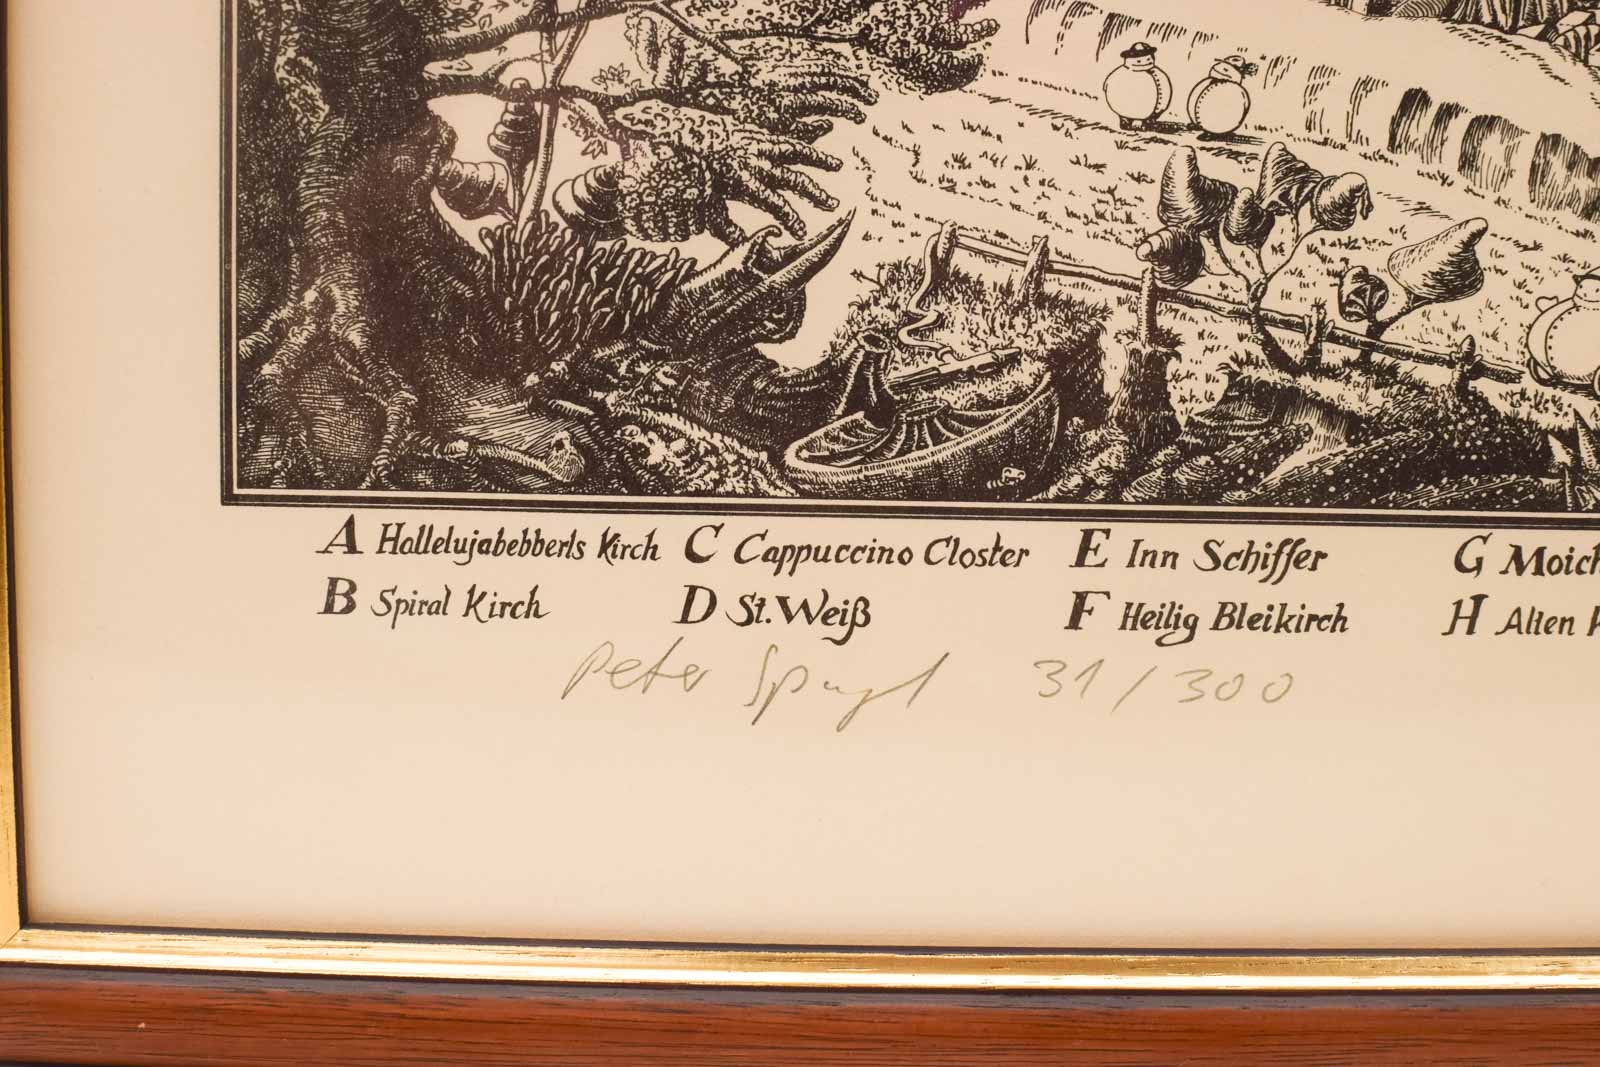 A Hallelujabebberls Kirch C Cappuccino Closter E Inn Schiffer G Moich
B Spiral Kirch D St. Weiß F Heilig Bleikirch H Alten
Peter 31/300